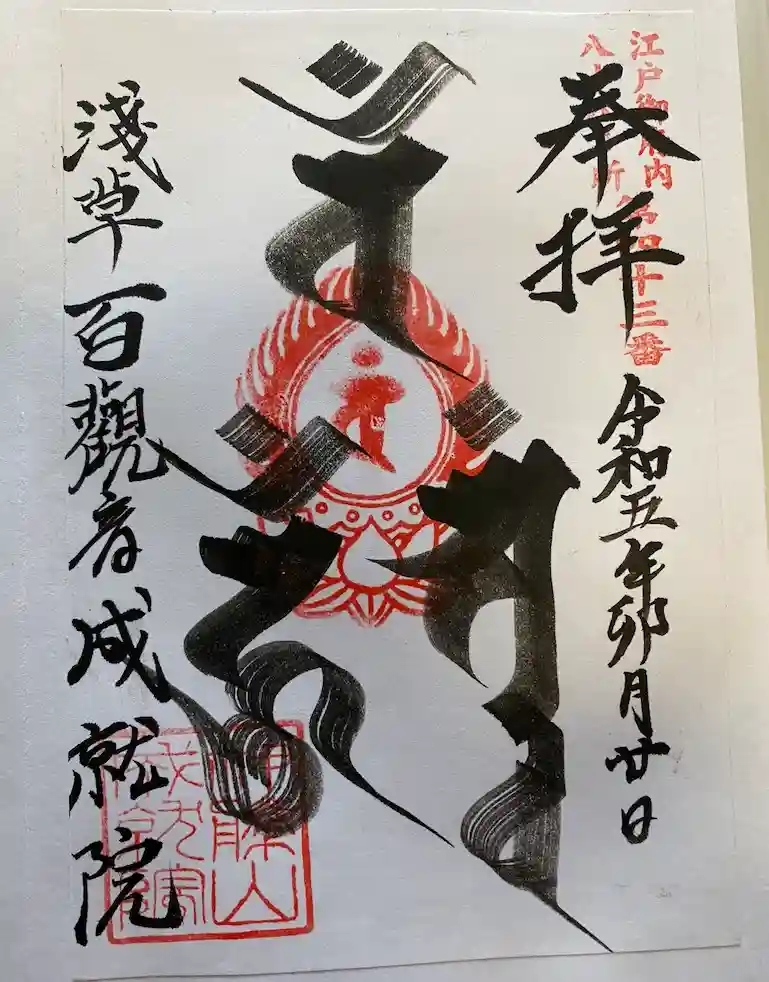 江戸御府内
八十八ヶ所
第四十三番
奉拝
令和五年卯月廿日
淺草百觀音成就院